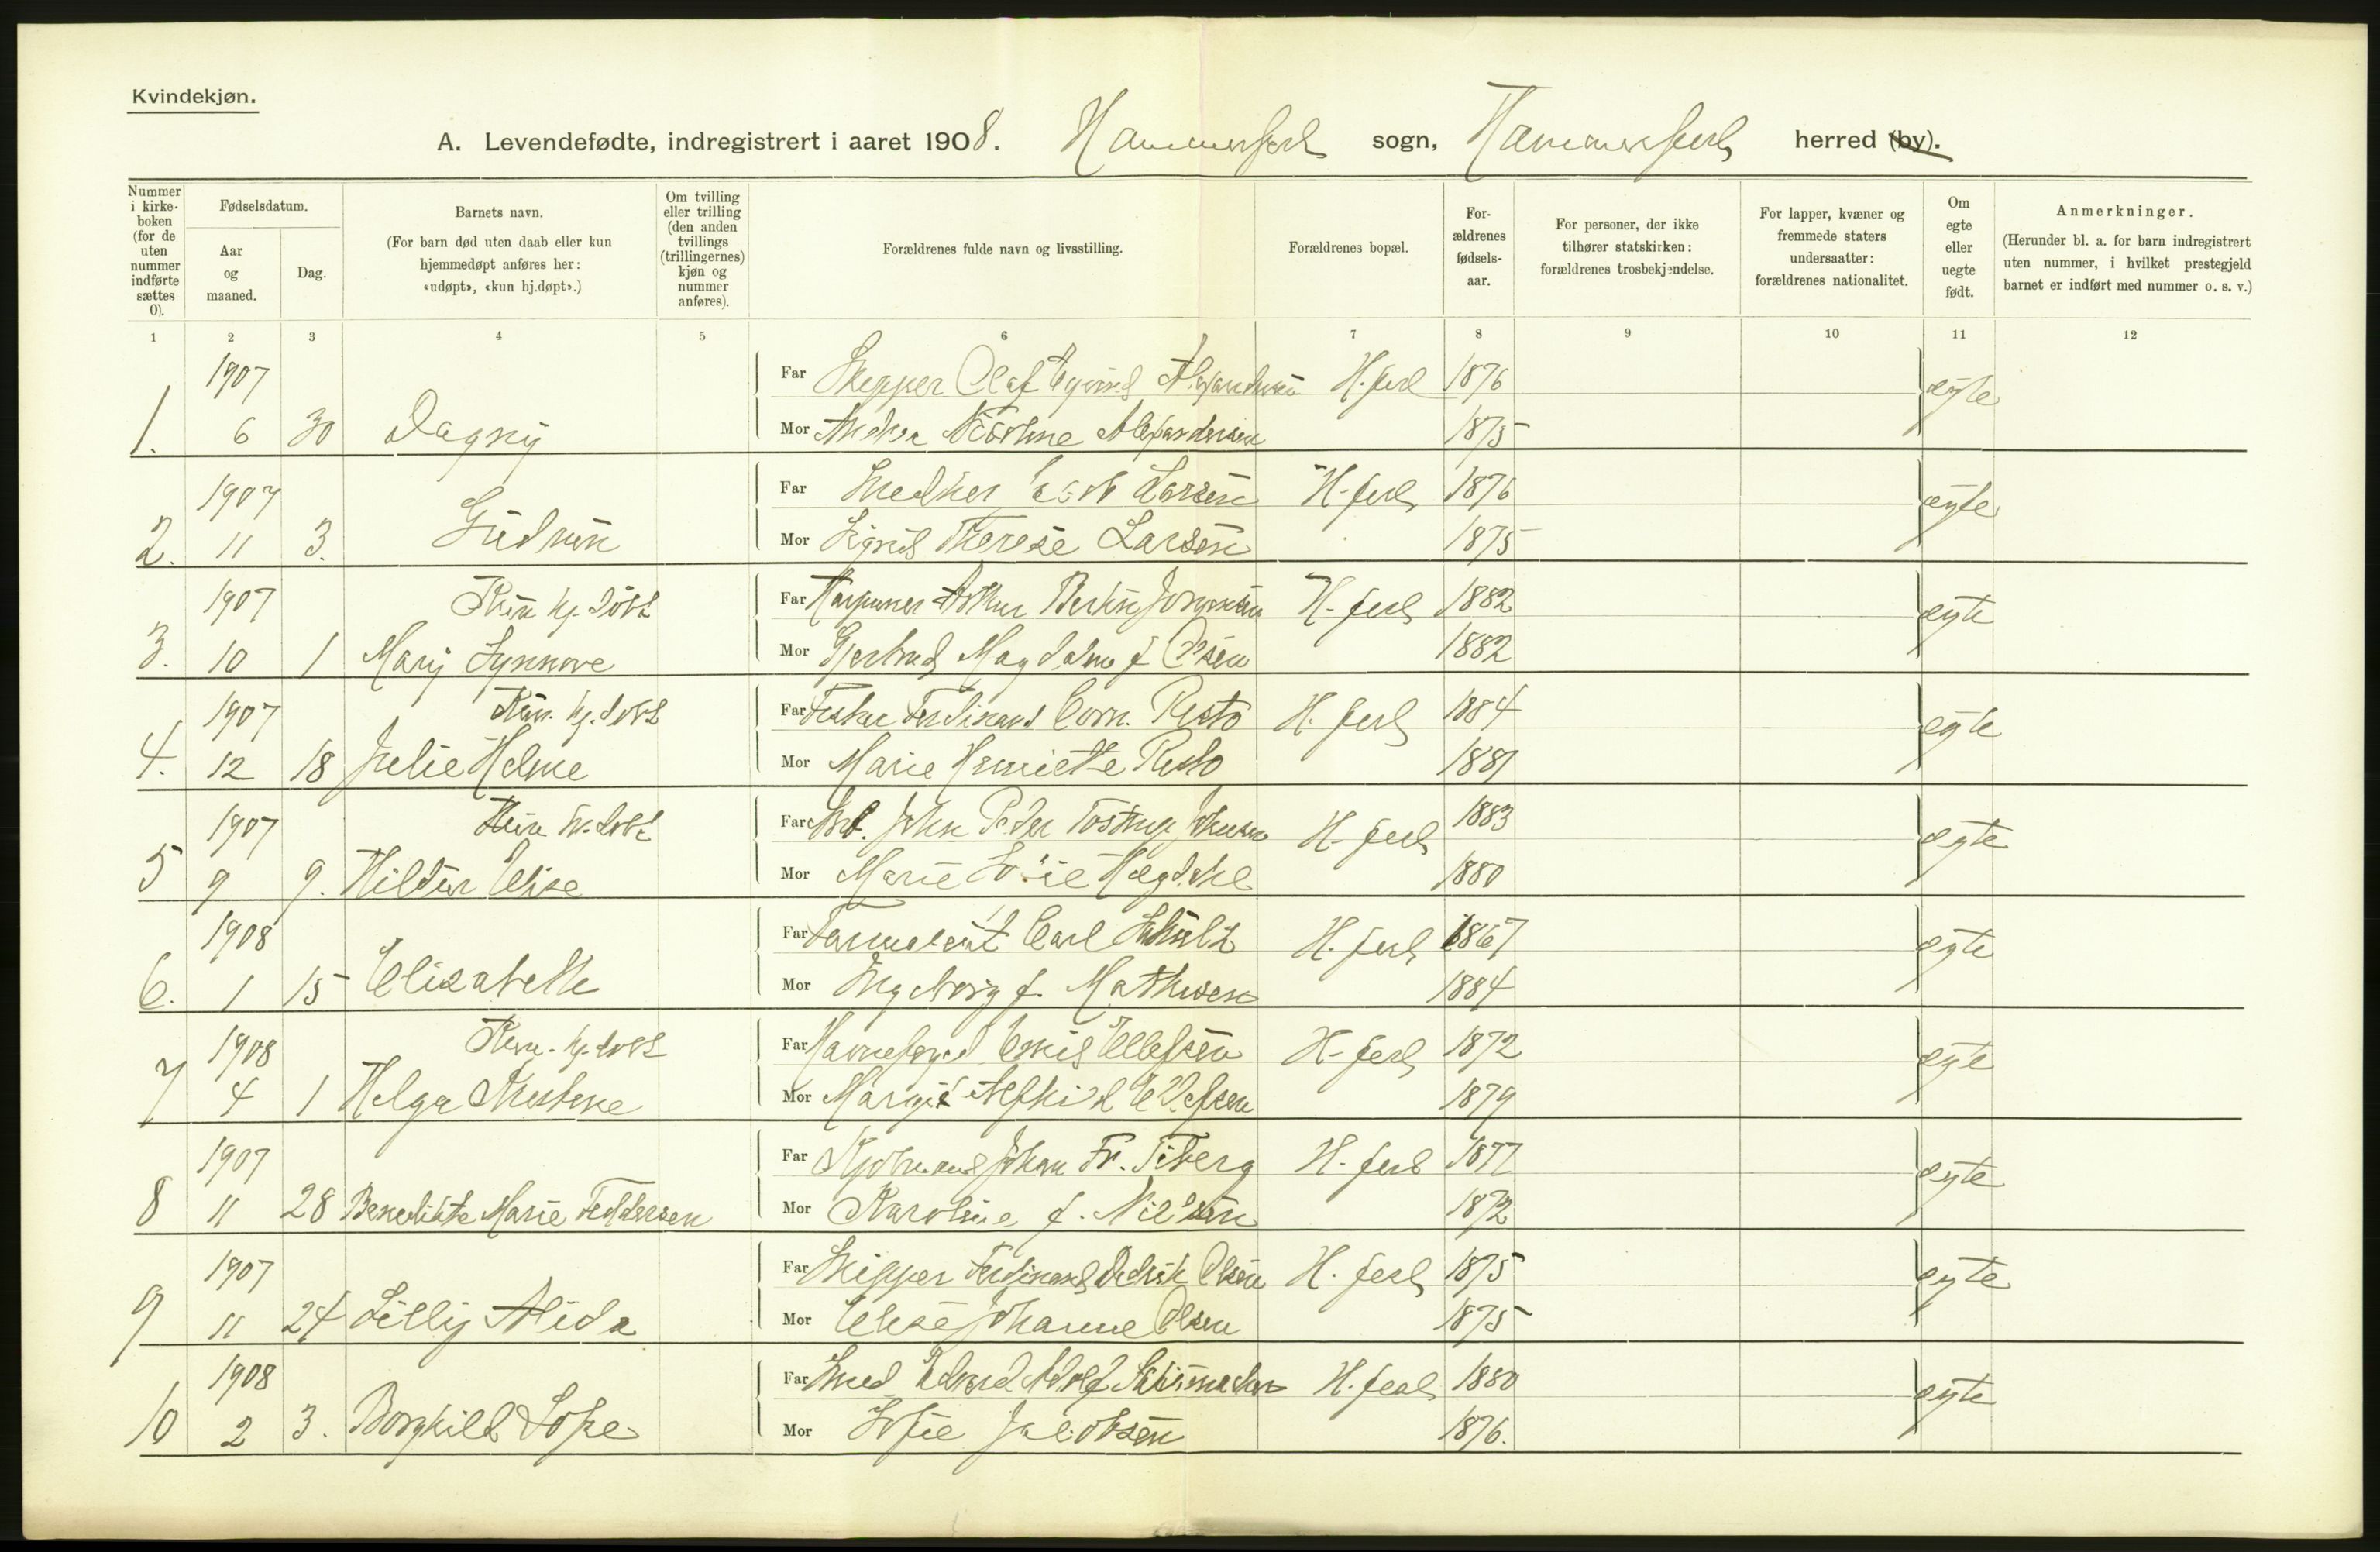 Kvindekjøn.
A. Levendefødte, indregistrert i aaret 1908. Hammerfest sogn, Hammerfest herred (by).
Nummer i kirkeboken (for de uten nummer indførte sættes 0).
Fødselsdatum.
Aar og maaned.
Dag.
Barnets navn.
(For barn død uten daab eller kun hjemmedøpt anføres her: «udøpt», «kun hj.døpt».)
Om tvilling eller trilling (den anden tvillings (trillingernes) kjøn og nummer anføres).
Forældrenes fulde navn og livsstilling.
Forældrenes bopæl.
Forældrenes fødselsaar.
For personer, der ikke tilhører statskirken: forældrenes trosbekjendelse.
For lapper, kvæner og fremmede staters undersaatter: forældrenes nationalitet.
Om egte eller uegte født.
Anmerkninger.
(Herunder bl. a. for barn indregistrert uten nummer, i hvilket prestegjeld barnet er indført med nummer o. s. v.)
1 2 3 4 5 6 7 8 9 10 11 12
1907 Far Skipper Olaf H. fest 1876 ægte
1. 6 30 Dagny Mor Alexandersen 1875
1907 Far Larsen H. fest 1876 ægte
2. 11 3. Gudrun Mor Sigrid Therese Larsen 1875
1907 Kun hj. døbt Far H. fest 1882 egte
3. 10 1 Mary Synnøve Mor Gjertrud Magdalene f Olsen 1882
1907 Kun. hj. døbt Far Fisker Ferdinand Corn. Risto H. fest 1884 egte
4. 12 18 Julie Helene Mor Marie Henriette Risto 1881
1907 Kun hj. døbt Far Arb. John Peder Tostrup Johnsen H. fest 1883 egte
5 9 9. Hildur Elise Mor Marie 1880
1908 Far Carl Schultz H. fest 1867 egte
6. 1 15 Elisabeth Mor Ingeborg f. Mathisen 1884
1908 Kun. hj. døbt Far Havnefoged Emil Ellefsen H. fest 1872 egte
7 4 1 Helga Mor Ellefsen 1879
1907 Far Kjøbmand Johan Fr. Fiberg H. fest 1877 egte
8 11 28 Benedikte Marie Feddersen Mor Karoline f. Nielsen 1872
1907 Far Skipper Ferdinand Didrik Olsen H. fest 1875 egte
9 11 24 Lilly Alida Mor Elise Johanne Olsen 1875
1908 Far Smed Edvard Adolf H. fest 1880 egte
10 2 3. Borghild Sofie Mor Sofie Jacobsen 1876.